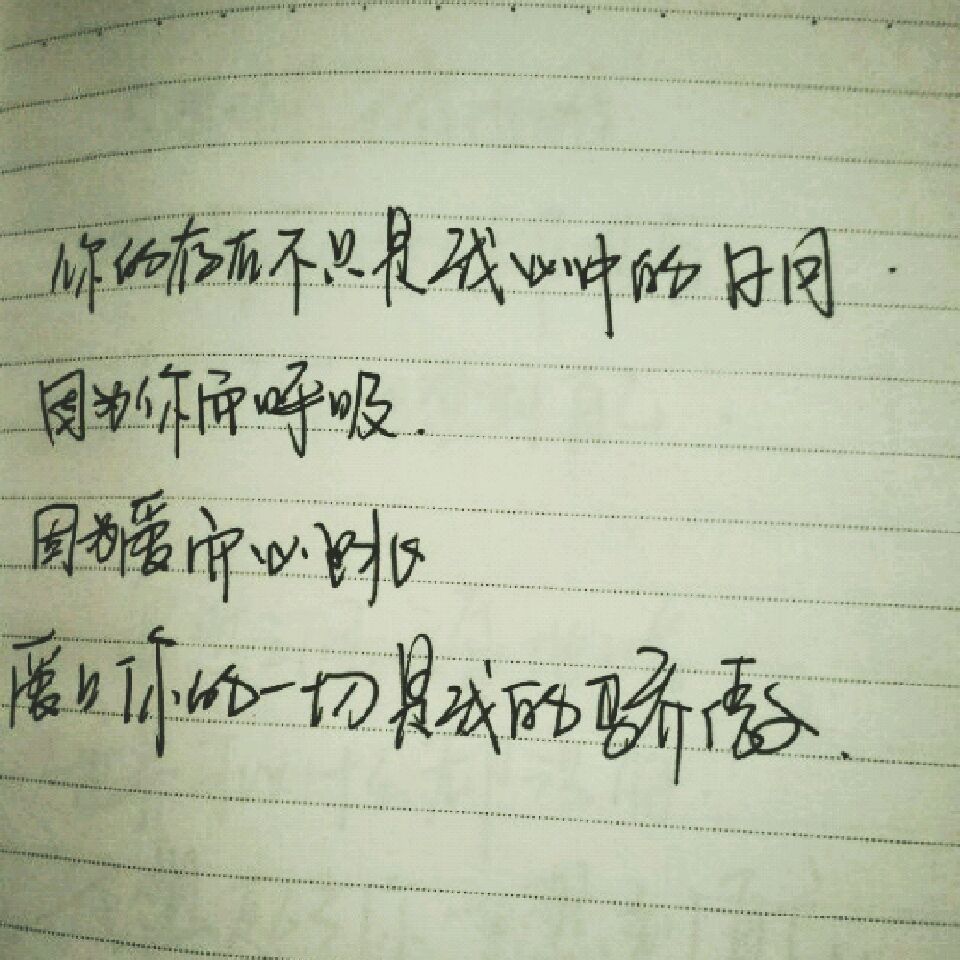 你的存在不只是我心中的时间.
因为你而呼吸.
因为爱而心跳
爱你的一切是我的骄傲.